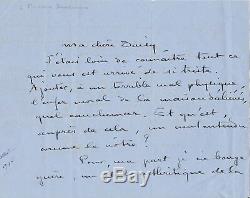 Ma chère Daisy
J'étais loin de connaître tout ce
qui vous est arrivé de si triste.
Ajouter, à un terrible mal physique
l'enfer moral de la maison d'aliénés
quel cauchemar. Et qu'est,
auprès de cela, un
comme le nôtre ?
Pour ma part je ne bouge
guère, un arthritique de la